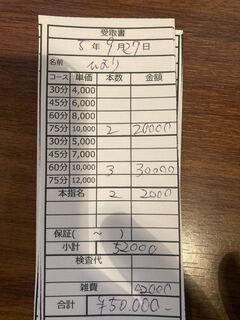 受取書
5年9月27日
名前 ひまり
コース 単価 本数 金額
30分 4,000
45分 6,000
60分 8,000
75分 10,000 2 20000
30分 5,000
45分 7,000
60分 10,000 3 30000
75分 12,000
本指名 2 2000
保証( 〜 )
小計 52000
検査代
雑費 2000
合計 ¥50.000-